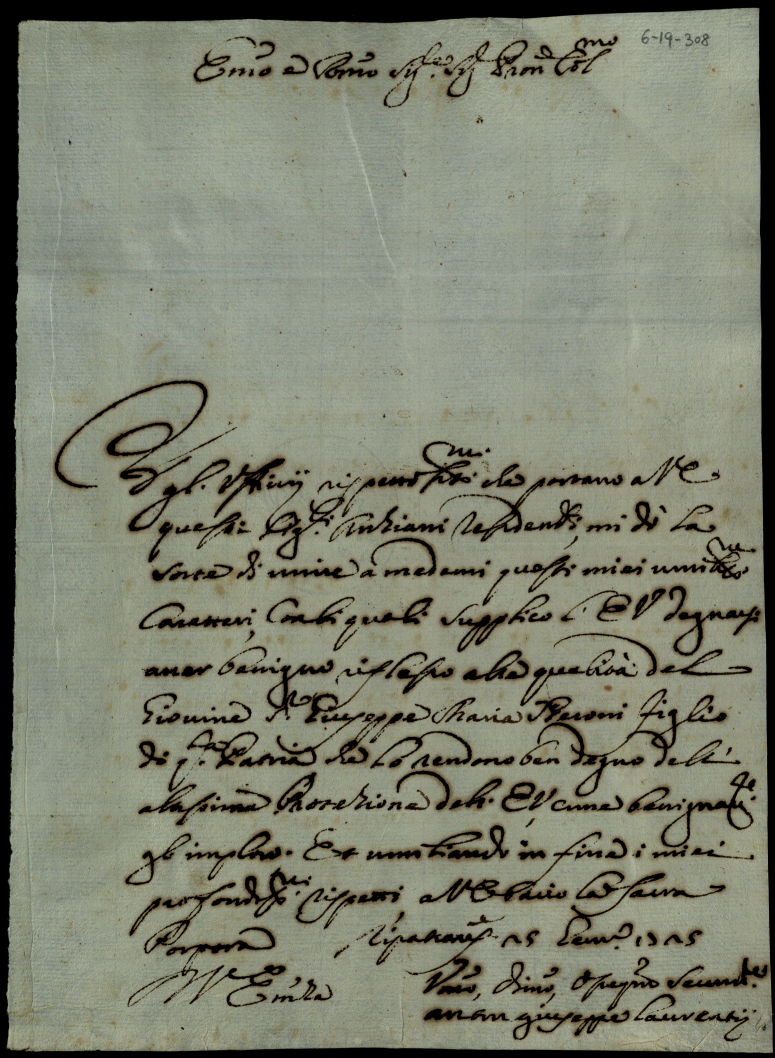 6-19-308
Emo e Rmo Sig.re Sig. Pron Col mo
gl. Uffizij rispettosissmi che portano a VE
questi Sig.ri Anziani Residenti, mi dà la
sorte di unire a medemi questi miei umilissmi
Caratteri, con li quali supplico l'EV degnarsi
aver benigno riflesso alle qualità del
Giovine Sr Giuseppe Maria Neroni figlio
di q.ta Patria che lo rendono ben degno dell'
altissima Protezione dell' EV, come benignamte
gl' imploro. Et umiliando in fine i miei
profondissmi rispetti a VE bacio la Sacra
Porpora Ripatrans.e 25 Genn.o 1725
Di V.ra Emza
Vmo, Dmo, Oblig.mo Servit.re
Giuseppe Laurentij